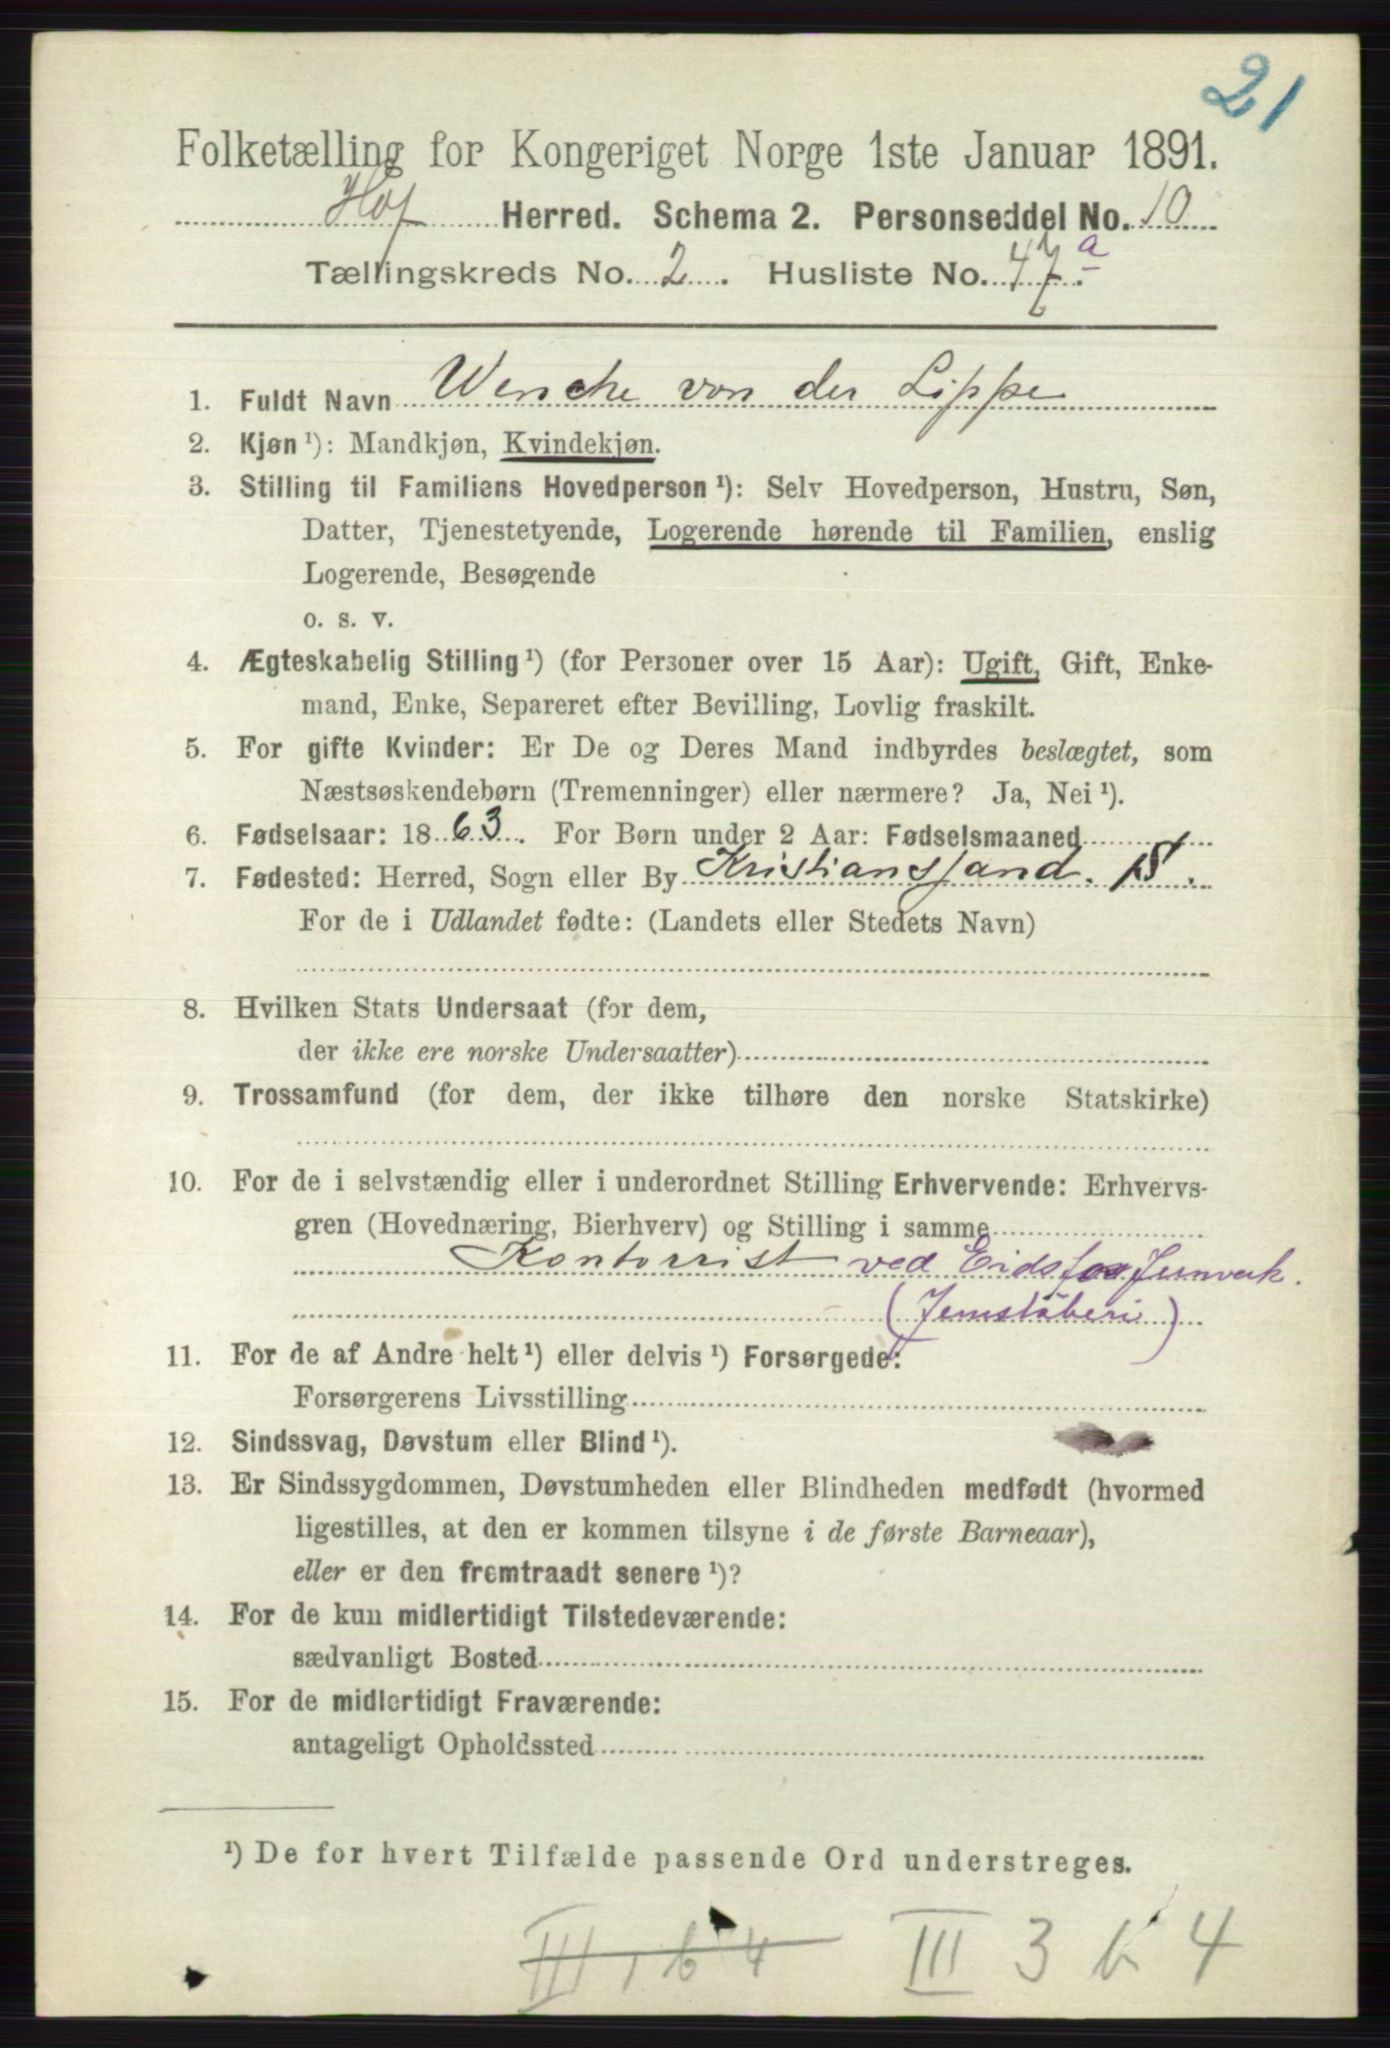 21
Folketælling for Kongeriget Norge 1ste Januar 1891.
Hof Herred. Schema 2. Personseddel No. 10
Tællingskreds No. 2. Husliste No. 47.a
1. Fuldt Navn Wenche von der Lippe
2. Kjøn ¹): Mandkjøn, Kvindekjøn.
3. Stilling til Familiens Hovedperson ¹): Selv Hovedperson, Hustru, Søn,
Datter, Tjenestetyende, Logerende hørende til Familien, enslig
Logerende, Besøgende
o. s. v.
4. Ægteskabelig Stilling ¹) (for Personer over 15 Aar): Ugift, Gift, Enke-
mand, Enke, Separeret efter Bevilling, Lovlig fraskilt.
5. For gifte Kvinder: Er De og Deres Mand indbyrdes beslægtet, som
Næstsøskendebørn (Tremenninger) eller nærmere? Ja, Nei ¹).
6. Fødselsaar: 1863. For Børn under 2 Aar: Fødselsmaaned
7. Fødested: Herred, Sogn eller By Kristianssand.
For de i Udlandet fødte: (Landets eller Stedets Navn)
8. Hvilken Stats Undersaat (for dem,
der ikke ere norske Undersaatter)
9. Trossamfund (for dem, der ikke tilhøre den norske Statskirke)
10. For de i selvstændig eller i underordnet Stilling Erhvervende: Erhvervs-
gren (Hovednæring, Bierhverv) og Stilling i samme
Kontorrist ved Eidsfos Jernverk.
(Jernstøberi)
11. For de af Andre helt ¹) eller delvis ¹) Forsørgede:
Forsørgerens Livsstilling
12. Sindssvag, Døvstum eller Blind ¹).
13. Er Sindssygdommen, Døvstumheden eller Blindheden medfødt (hvormed
ligestilles, at den er kommen tilsyne i de første Barneaar),
eller er den fremtraadt senere ¹)?
14. For de kun midlertidigt Tilstedeværende:
sædvanligt Bosted
15. For de midlertidigt Fraværende:
antageligt Opholdssted
¹) De for hvert Tilfælde passende Ord understreges.
III 1 b 4 III 3 b 4